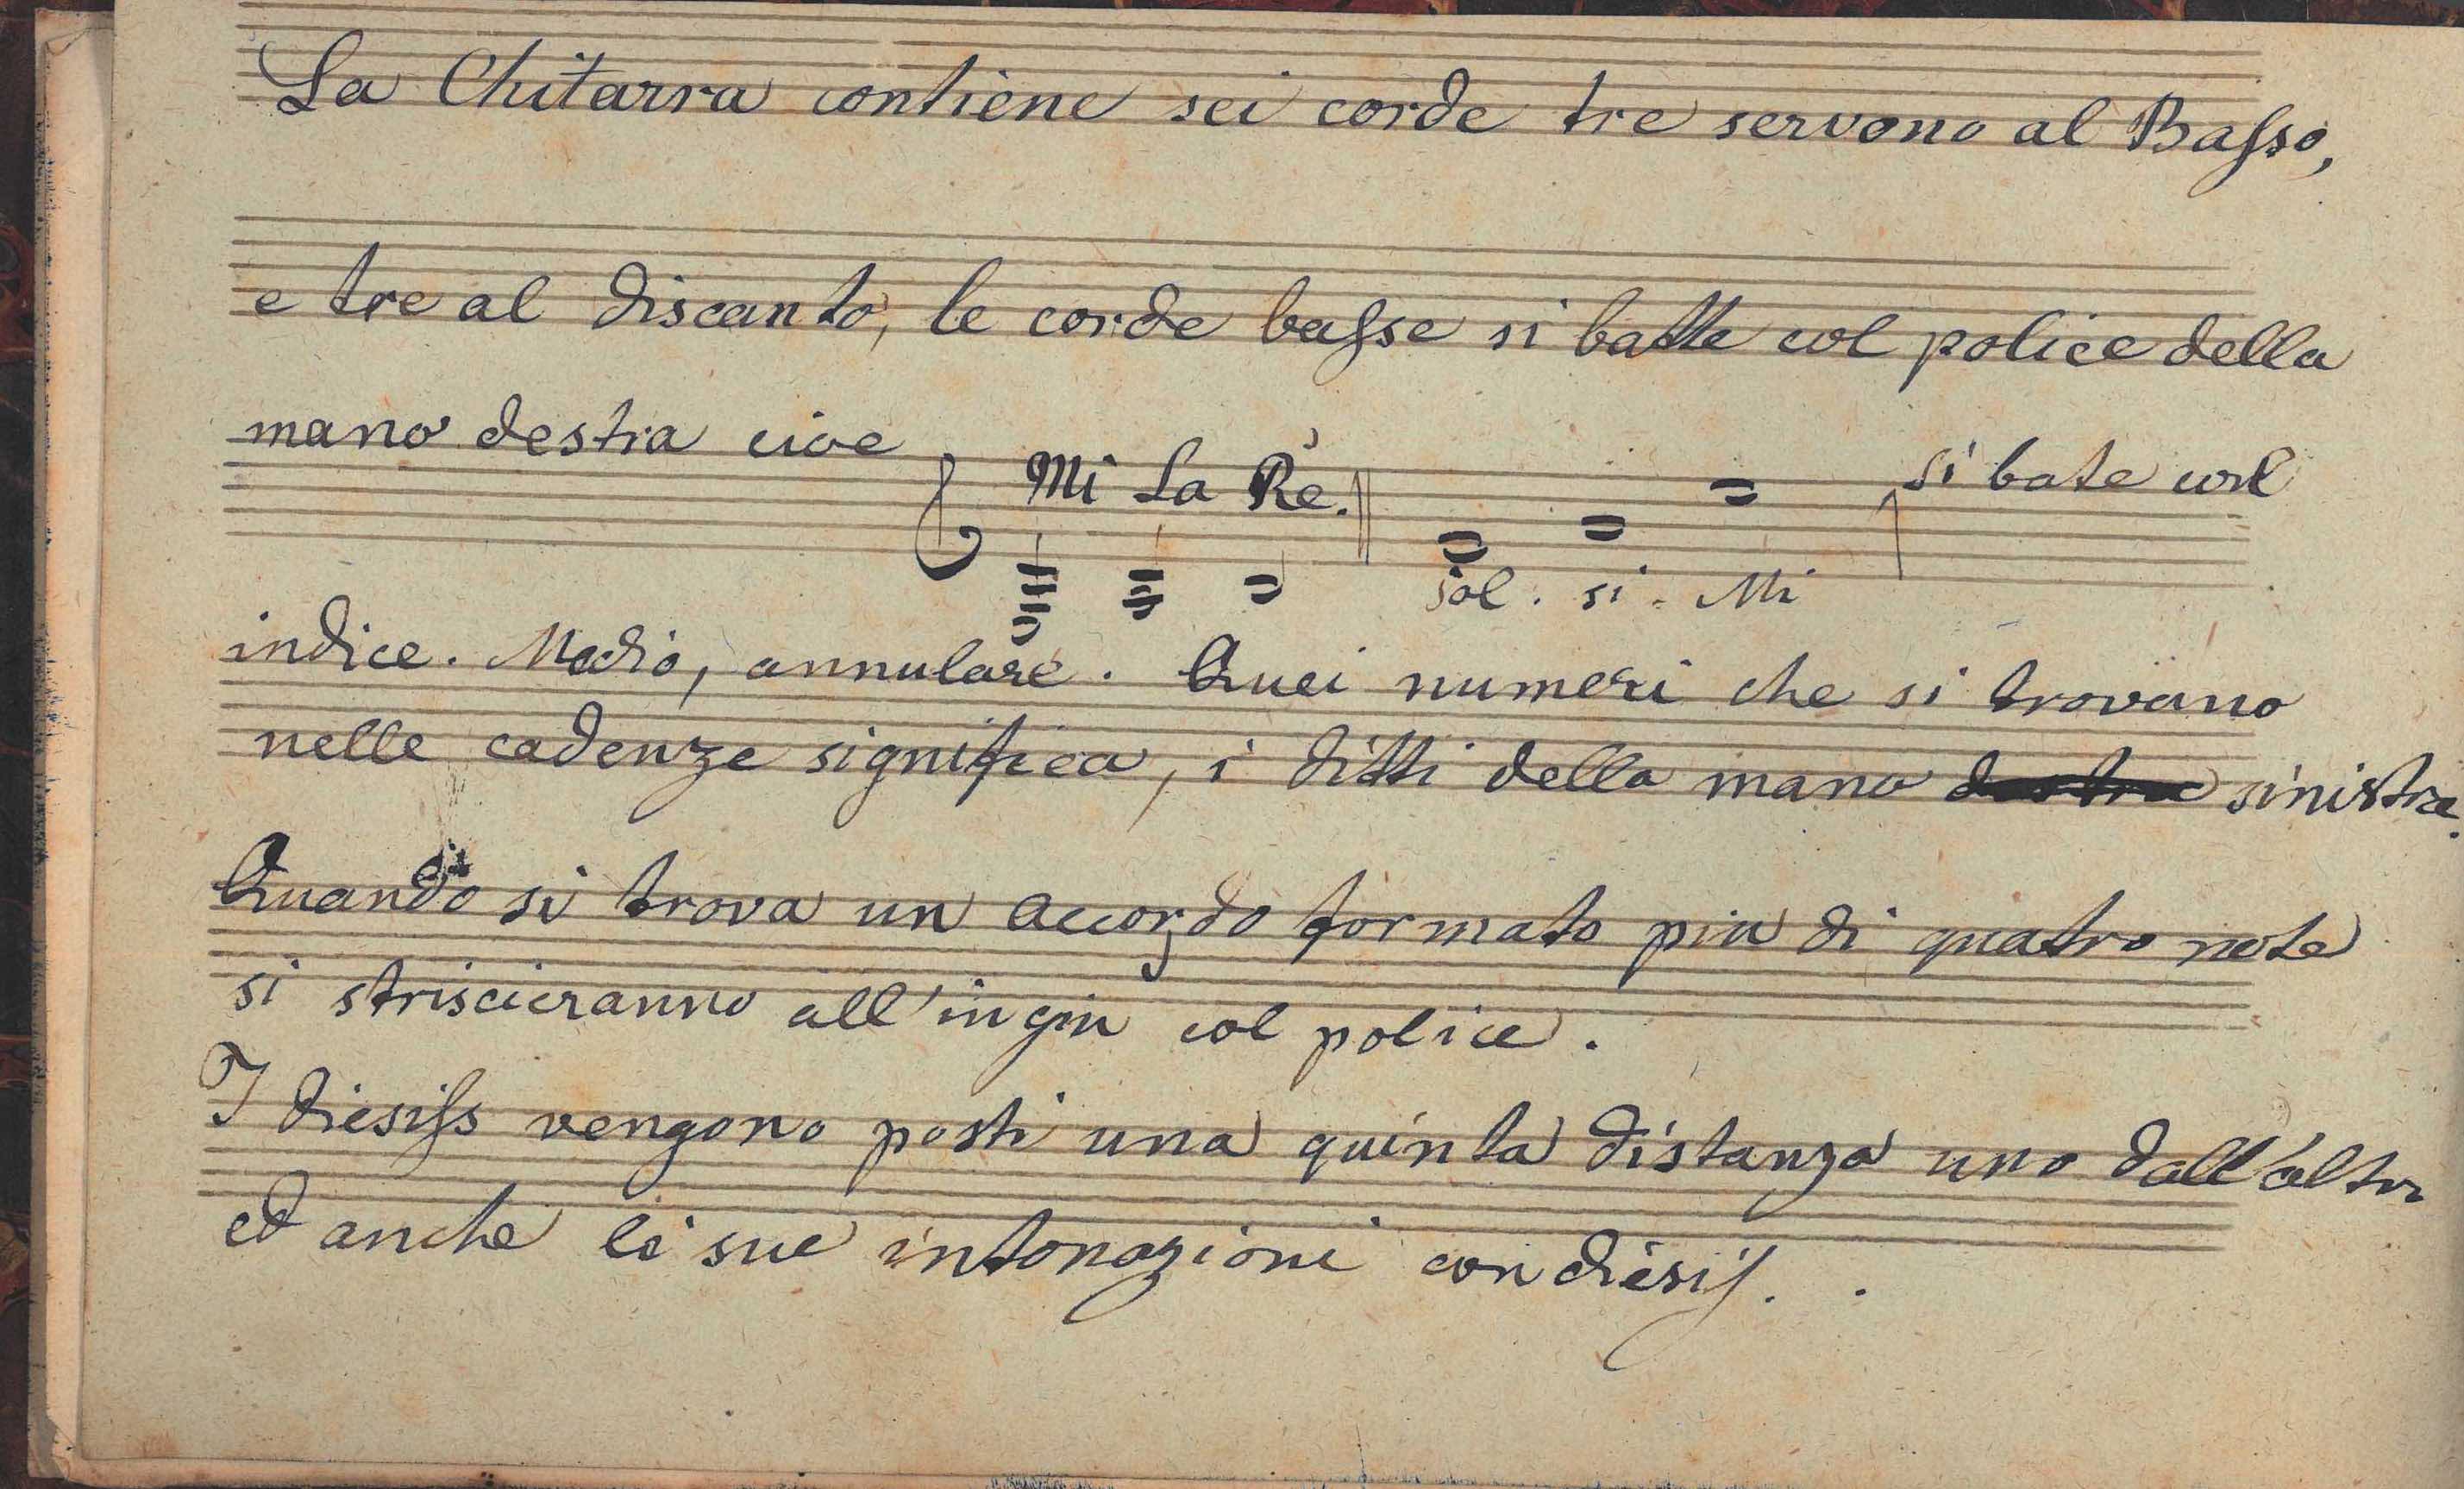 La Chitarra contiene sei corde tre servono al Baſso,
e tre al discanto, le corde baſse si batte col police della
mano destra cioe Mi La Re. si bate col
sol. si. Mi
indice. Medio, annulare. Quei numeri che si trovano
nelle cadenze significa, i ditti della mano destra sinistra.
Quando si trova un accordo formato piu di quatro note
si striscieranno all'ingiu col police.
I diesiſs vengono posti una quinta distanza uno dall'altro
ed anche le sue intonazioni con diesiſ. .